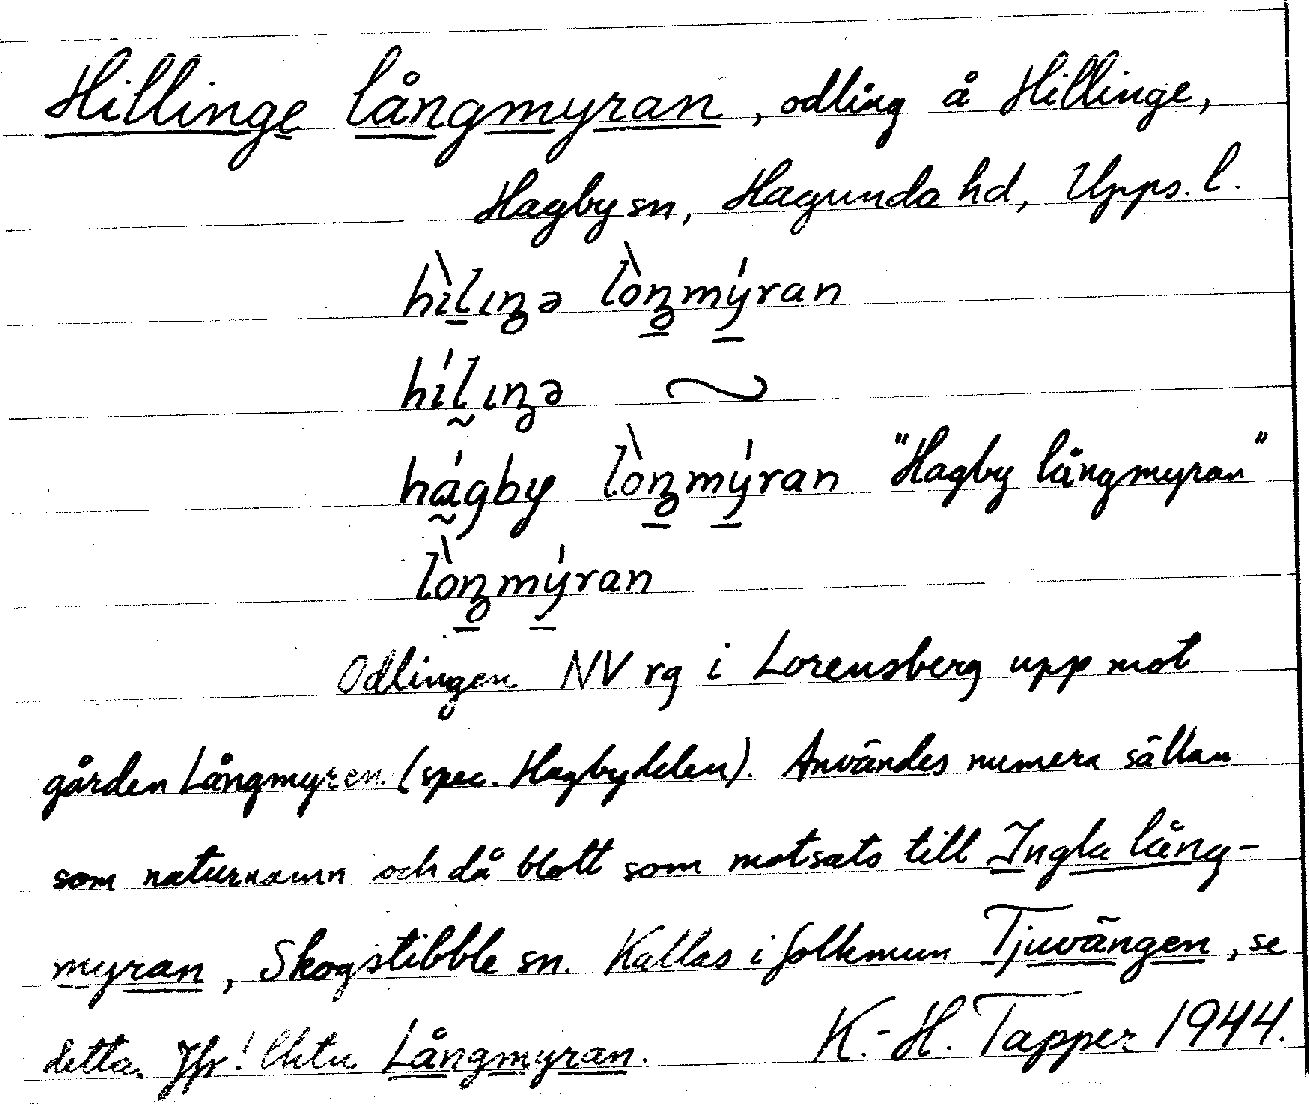 Hillinge långmyran, odling å Hillinge,
Hagby sn, Hagunda hd, Upps. l.
hìlıꞑə lòꞑmýran
hílıꞑə ~
hágby lòꞑmýran "Hagby långmyran"
lòꞑmýran
Odlingen NV rg i Lorensberg upp mot
gården Långmyren. (spec. Hagbydelen). Användes numera sällan
som naturnamn och då blott som motsats till Ingla lång-
myran, Skogstibble sn. Kallas i folkmun Tjuvängen, se
detta. Jfr! Långmyran. K.-H. Tapper 1944.